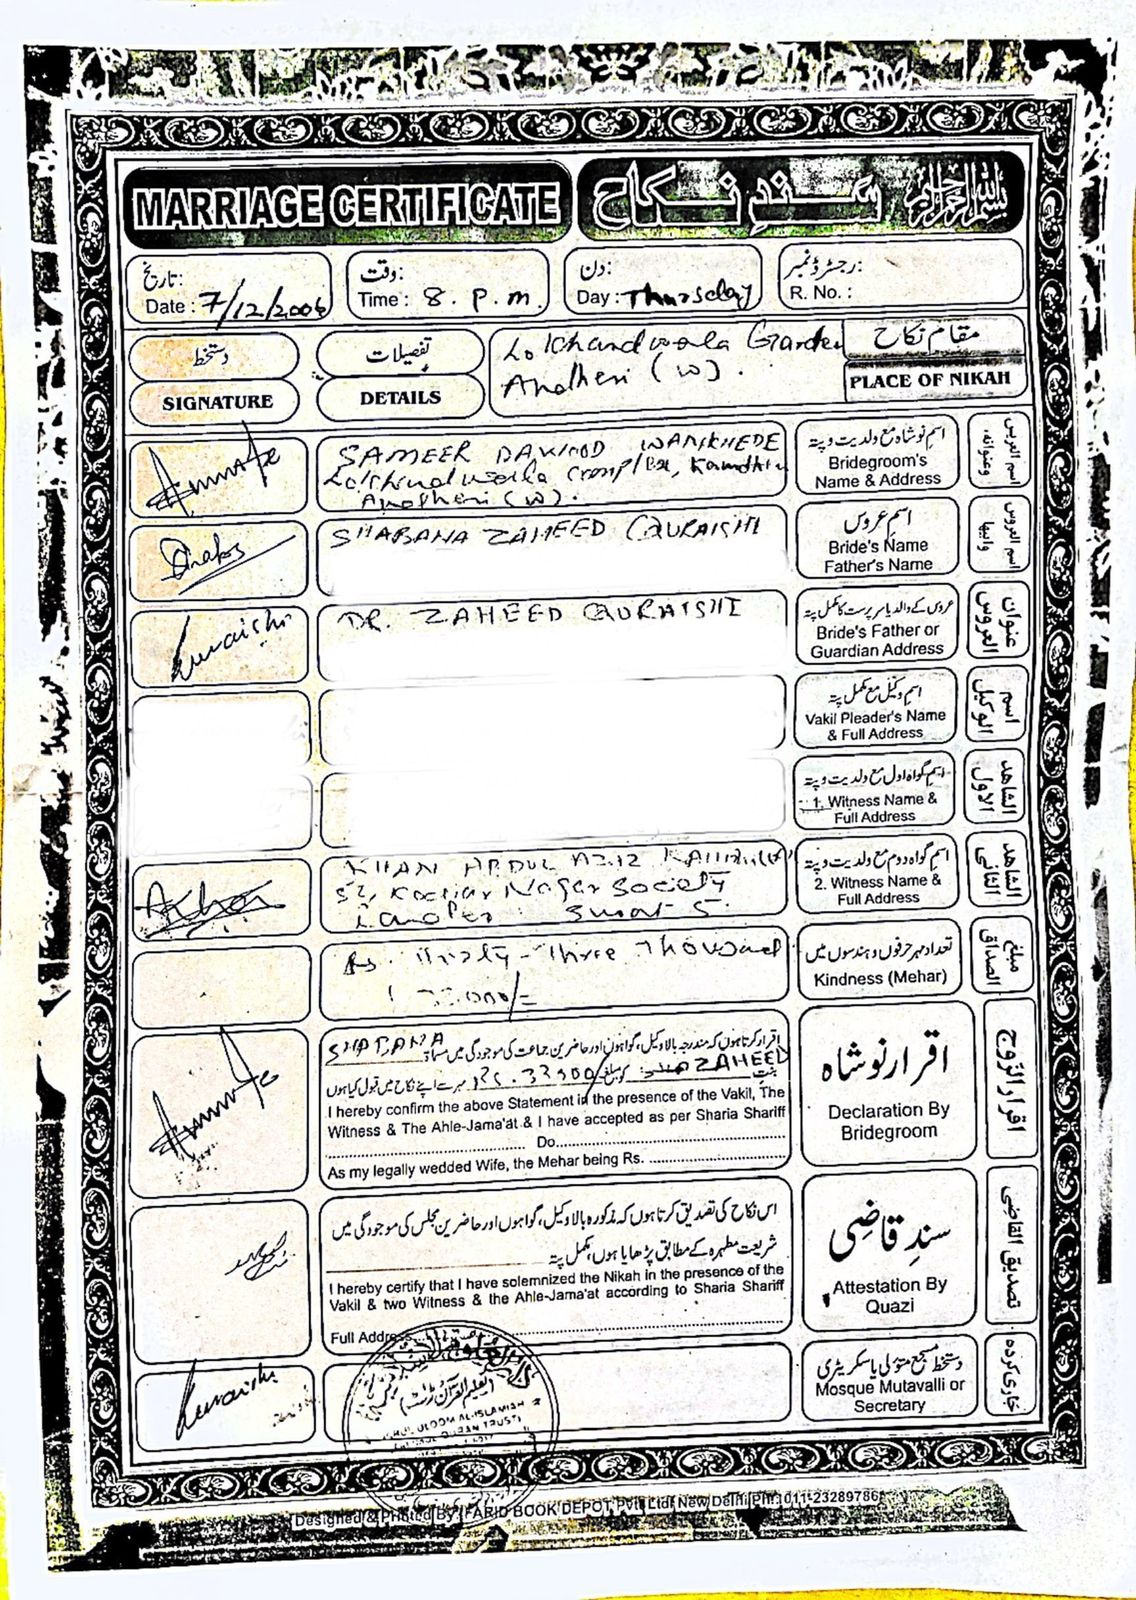 MARRIAGE CERTIFICATE
سندِ نکاح
بسم الله الرحمن الرحيم
تاریخ:
Date : 7/12/2006
وقت:
Time : 8. P.m.
دن:
Day : Thursday
رجسٹرڈ نمبر:
R. No. :
دستخط
SIGNATURE
تفصیلات
DETAILS
Lokhandwala Garden
Andheri (W).
مقام نکاح
PLACE OF NIKAH
SAMEER DAWOOD WANKHEDE
Lokhandwala Complex,
Andheri (W).
اسم نوشاہ مع ولدیت و پتہ
Bridegroom's
Name & Address
SHABANA ZAHEED QURAISHI
اسمِ عروس
Bride's Name
Father's Name
Quraishi
DR. ZAHEED QURAISHI
عروس کے والد یا سرپرست کا مکمل پتہ
Bride's Father or
Guardian Address
عنوان
العروس
اسم وکیل مع مکمل پتہ
Vakil Pleader's Name
& Full Address
اسم
الوکیل
اسم گواہ اول مع ولدیت و پتہ
1. Witness Name &
Full Address
الشاهد
الاول
KHAN ABDUL AZIZ
Nagar Society
Surat 5.
اسم گواہ دوم مع ولدیت و پتہ
2. Witness Name &
Full Address
الشاهد
الثانی
Rs. Thirty-Three Thousand
33,000/=
تعداد مہر حرفوں و ہندسوں میں
Kindness (Mehar)
مبلغ
الصداق
اقرار کرتا ہوں کہ مندرجہ بالا وکیل، گواہوں اور حاضرین جماعت کی موجودگی میں مسماۃ SHABANA
بنت ZAHEED کو مبلغ Rs. 33000/ مہر سے اپنے نکاح میں قبول کیا ہوں
I hereby confirm the above Statement in the presence of the Vakil, The
Witness & The Ahle-Jama'at & I have accepted as per Sharia Shariff
Do
As my legally wedded Wife, the Mehar being Rs.
اقرار نوشاہ
Declaration By
Bridegroom
اقرار الزوج
اس نکاح کی تصدیق کرتا ہوں کہ مذکورہ بالا وکیل، گواہوں اور حاضرین مجلس کی موجودگی میں
شریعت مطہرہ کے مطابق پڑھایا ہوں، مکمل پتہ
I hereby certify that I have solemnized the Nikah in the presence of the
Vakil & two Witness & the Ahle-Jama'at according to Sharia Shariff
Full Address
سندِ قاضی
Attestation By
Quazi
تصدیق القاضی
Quraishi
دستخط مسجد متولی یا سکریٹری
Mosque Mutavalli or
Secretary
جاری کردہ
ULOOM AL-ISLAMIAH
QURAN TRUST
Designed & Printed By: FARID BOOK DEPOT Pvt. Ltd. New Delhi Ph: 011-23289786